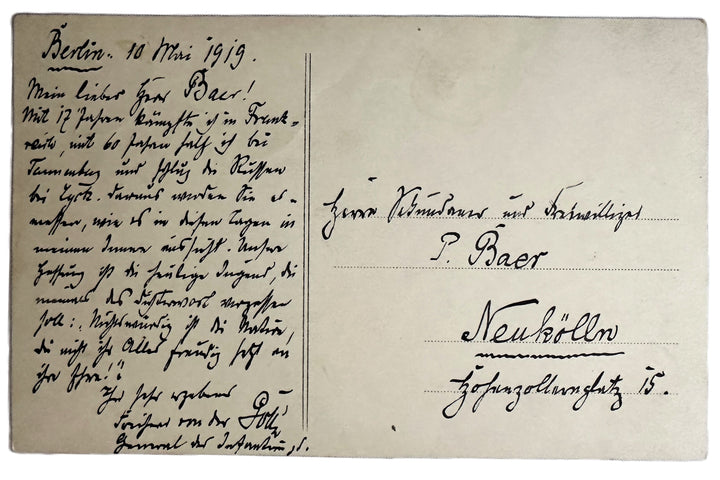 Berlin. 10 Mai 1919.
Mein lieber Herr Baer!
Mit 17 Jahren kämpfte ich in Frank-
reich, mit 60 Jahren half ich bei
Tannenberg und schlug die Russen
bei Lyck. Daraus werden Sie er-
messen, wie es in diesen Tagen in
meinem Innern aussieht. Unsere
Hoffnung ist die heutige Jugend, die
niemals das Dichterwort vergessen
soll: „Nichtswürdig ist die Nation,
die nicht ihr Alles freudig setzt an
ihre Ehre!"
Ihr sehr ergebener
Freiherr von der Goltz
General der Infanterie,
Herrn Sekundaner und Freiwilliger
P. Baer
Neukölln
Hohenzollernplatz 15.